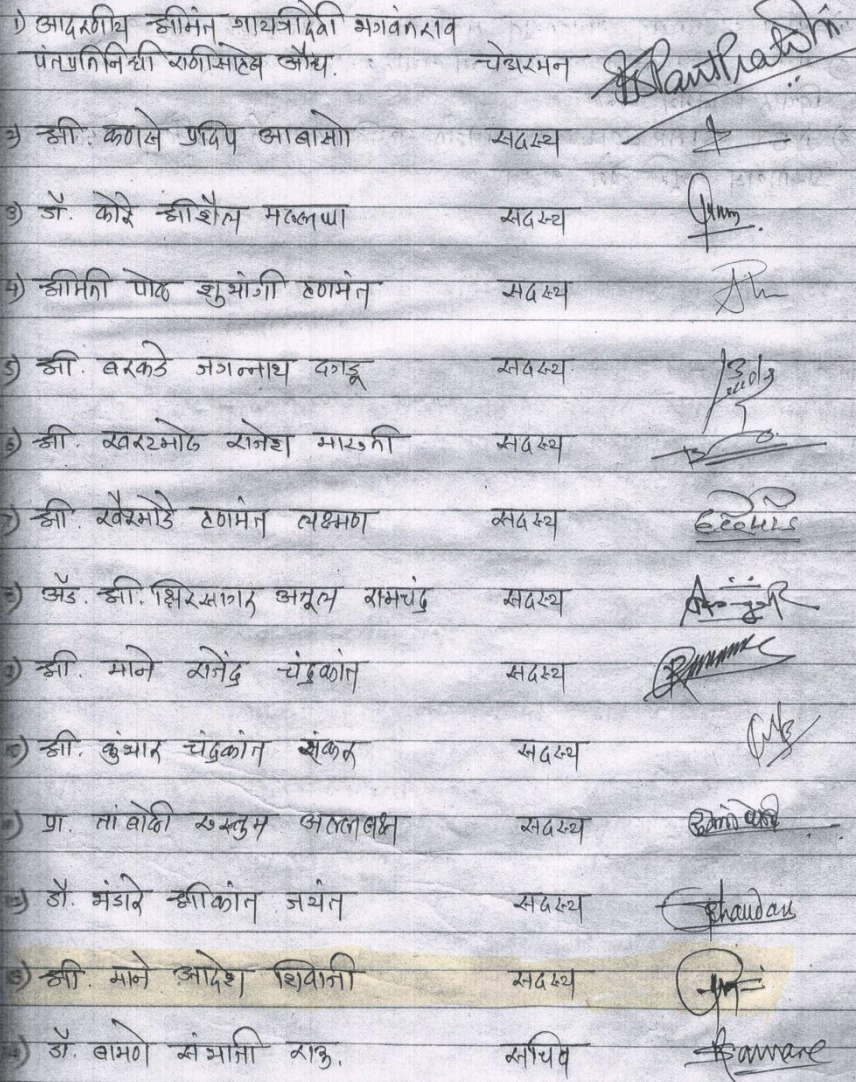 १) आदरणीय श्रीमंत गायत्रीदेवी भगवंतराव
पंतप्रतिनिधी राणीसाहेब औंध. चेअरमन Pant Pratinidhi
२) श्री. कणसे प्रदिप आबासो सदस्य
३) डॉ. कोरे श्रीशैल मल्लप्पा सदस्य
४) श्रीमती पोळ शुभांगी हणमंत सदस्य
५) श्री. बरकडे जगन्नाथ दगडू सदस्य
६) श्री. खरटमोल राजेश मारुती सदस्य
७) श्री. खैरमोडे हणमंत लक्ष्मण सदस्य
८) अ‍ॅड. श्री. क्षिरसागर अतूल रामचंद्र सदस्य
९) श्री. माने राजेंद्र चंद्रकांत सदस्य
१०) श्री. कुंभार चंद्रकांत शंकर सदस्य
प्रा. तांबोळी रुस्तुम अल्लाबक्ष सदस्य
डॉ. भंडारे श्रीकांत जयंत सदस्य
श्री. माने आदेश शिवाजी सदस्य
डॉ. बामणे संभाजी राऊ. सचिव Bamane